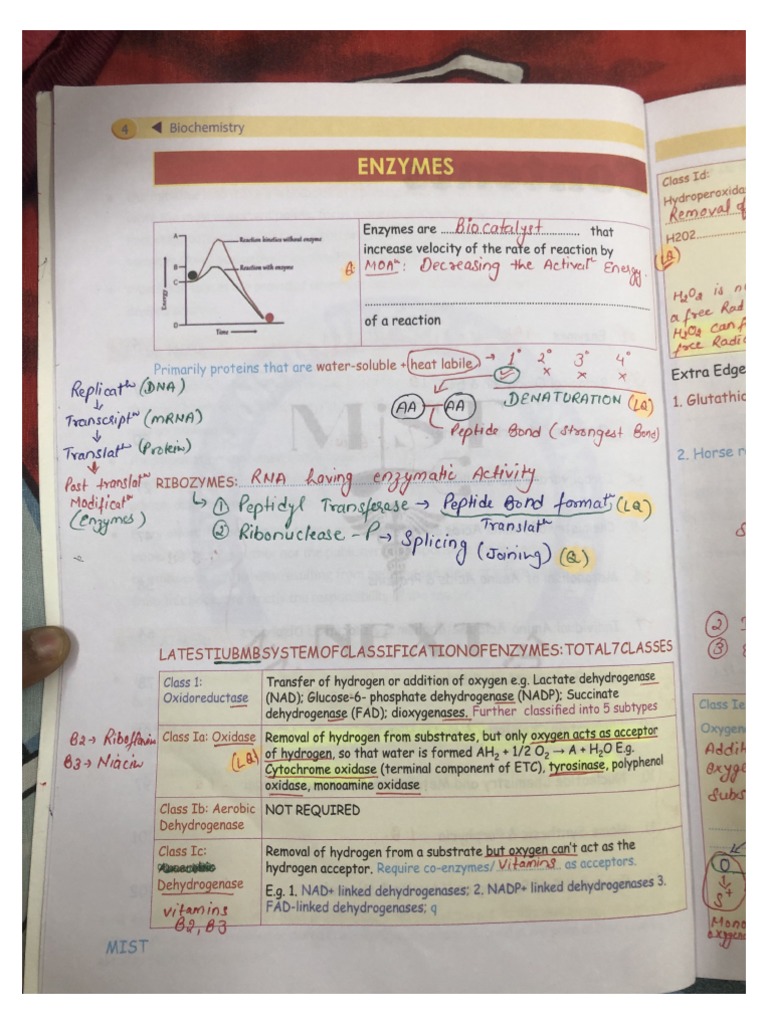 4 ◄ Biochemistry
ENZYMES
A
B
C
D
Energy
Time
Reaction kinetics without enzyme
Reaction with enzyme
Enzymes are ....Biocatalyst.... that
increase velocity of the rate of reaction by
Q MOAⁿ: Decreasing the Activatⁿ Energy.
of a reaction
Primarily proteins that are water-soluble + heat labile → 1° 2° 3° 4°
✓ × × ×
AA AA DENATURATION (LQ)
Peptide Bond (Strongest Bond)
Replicatⁿ (DNA)
↓
Transcriptⁿ (mRNA)
↓
Translatⁿ (Protein)
↓
Post translatⁿ
Modificatⁿ
(Enzymes)
RIBOZYMES: RNA having enzymatic Activity
① Peptidyl Transferase → Peptide Bond formatⁿ (LQ)
Translatⁿ
② Ribonuclease - P → Splicing (Joining) (Q)
MIST
NEXT
LATESTIUBMBSYSTEMOFCLASSIFICATIONOFENZYMES:TOTAL7CLASSES
Class 1:
Oxidoreductase
Transfer of hydrogen or addition of oxygen e.g. Lactate dehydrogenase
(NAD); Glucose-6- phosphate dehydrogenase (NADP); Succinate
dehydrogenase (FAD); dioxygenases. Further classified into 5 subtypes
B2→ Riboflavin
B3→ Niacin
Class Ia: Oxidase
(LQ)
Removal of hydrogen from substrates, but only oxygen acts as acceptor
of hydrogen, so that water is formed AH₂ + 1/2 O₂ → A + H₂O E.g.
Cytochrome oxidase (terminal component of ETC), tyrosinase, polyphenol
oxidase, monoamine oxidase
Class Ib: Aerobic
Dehydrogenase
NOT REQUIRED
Class Ic:
Dehydrogenase
vitamins
B2, B3
Removal of hydrogen from a substrate but oxygen can't act as the
hydrogen acceptor. Require co-enzymes/ vitamins as acceptors.
E.g. 1. NAD+ linked dehydrogenases; 2, NADP+ linked dehydrogenases 3.
FAD-linked dehydrogenases; q
MIST
Class Id:
Removal
H2O2
(LQ)
H₂O₂ is
a free
H₂O₂ can
free
Extra Edge
1.
2. Horse
②
③
Class Ie
O
↓
S